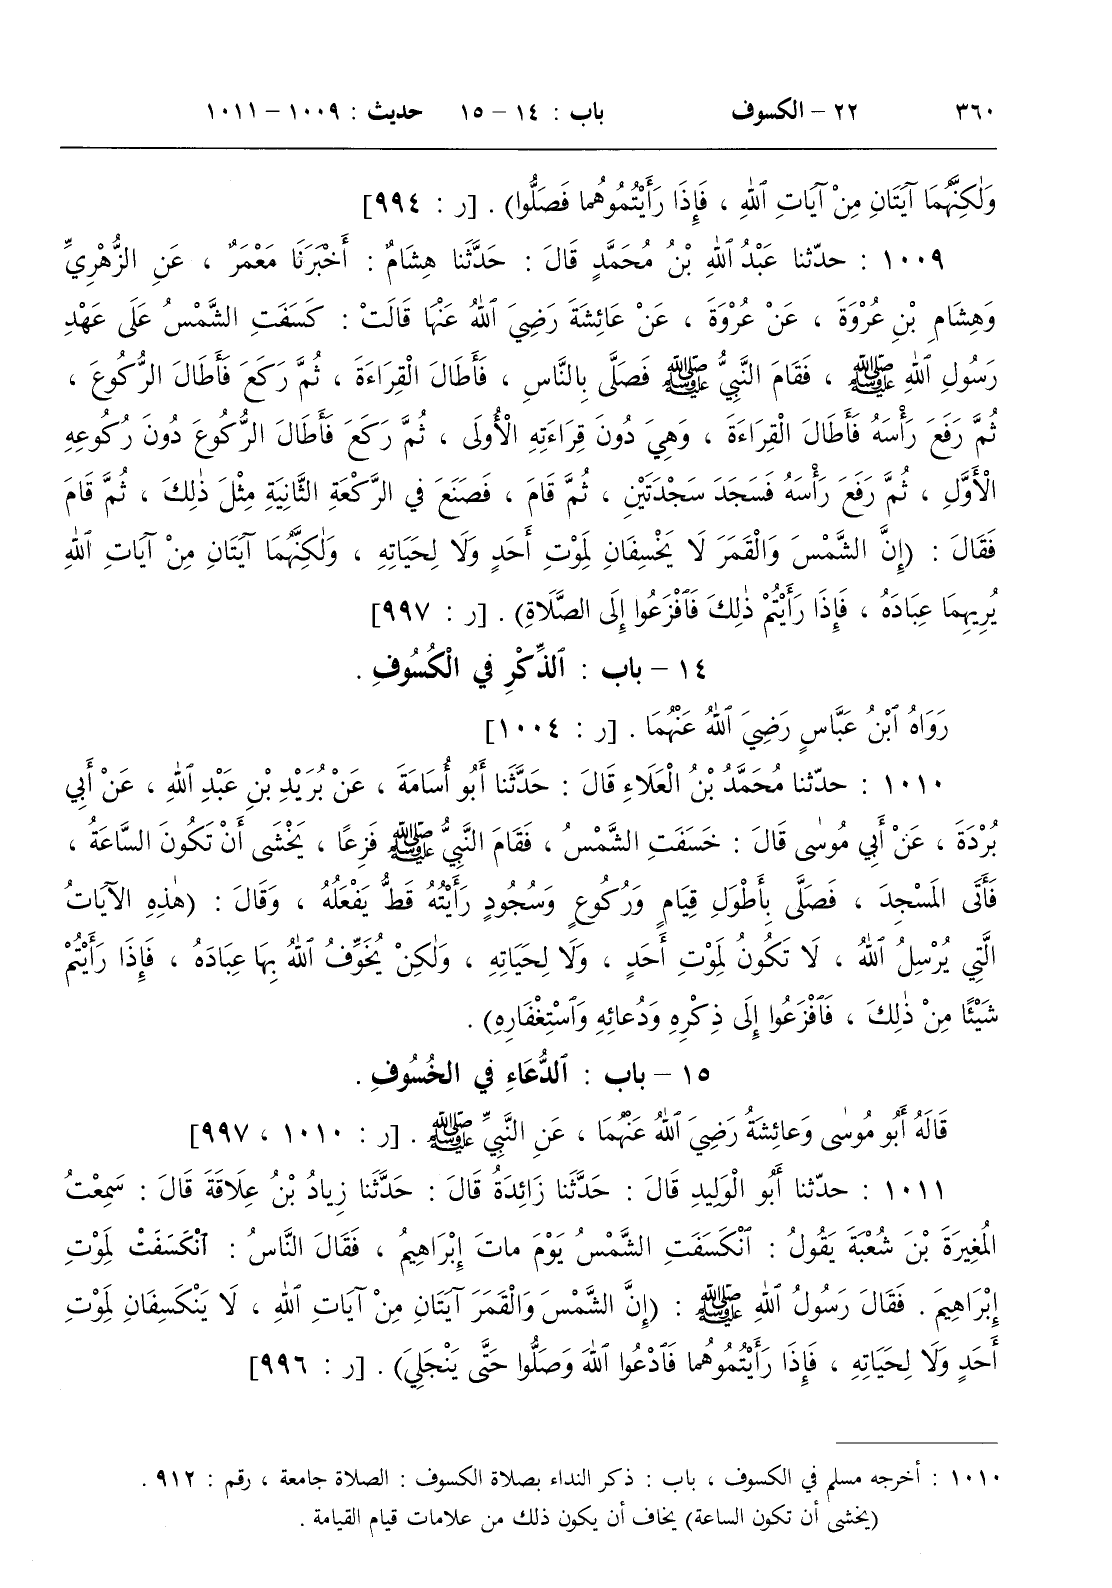 ٣٦٠ ٢٢ – الكسوف باب : ١٤ – ١٥ حديث : ١٠٠٩ – ١٠١١
وَلٰكِنَّهُمَا آيَتَانِ مِنْ آيَاتِ ٱللهِ ، فَإِذَا رَأَيْتُمُوهُما فَصَلُّوا) . [ر : ٩٩٤]
١٠٠٩ : حدّثنا عَبْدُ ٱللهِ بْنُ مُحَمَّدٍ قَالَ : حَدَّثَنا هِشَامٌ : أَخْبَرَنَا مَعْمَرٌ ، عَنِ الزُّهْرِيِّ
وَهِشَامِ بْنِ عُرْوَةَ ، عَنْ عُرْوَةَ ، عَنْ عَائِشَةَ رَضِيَ ٱللهُ عَنْهَا قَالَتْ : كَسَفَتِ الشَّمْسُ عَلَى عَهْدِ
رَسُولِ ٱللهِ ﷺ ، فَقَامَ النَّبِيُّ ﷺ فَصَلَّى بِالنَّاسِ ، فَأَطَالَ الْقِرَاءَةَ ، ثُمَّ رَكَعَ فَأَطَالَ الرُّكُوعَ ،
ثُمَّ رَفَعَ رَأْسَهُ فَأَطَالَ الْقِرَاءَةَ ، وَهِيَ دُونَ قِرَاءَتِهِ الْأُولَى ، ثُمَّ رَكَعَ فَأَطَالَ الرُّكُوعَ دُونَ رُكُوعِهِ
الْأَوَّلِ ، ثُمَّ رَفَعَ رَأْسَهُ فَسَجَدَ سَجْدَتَيْنِ ، ثُمَّ قَامَ ، فَصَنَعَ فِي الرَّكْعَةِ الثَّانِيَةِ مِثْلَ ذٰلِكَ ، ثُمَّ قَامَ
فَقَالَ : (إِنَّ الشَّمْسَ وَالْقَمَرَ لَا يَخْسِفَانِ لِمَوْتِ أَحَدٍ وَلَا لِحَيَاتِهِ ، وَلٰكِنَّهُمَا آيَتَانِ مِنْ آيَاتِ ٱللهِ
يُرِيهِمَا عِبَادَهُ ، فَإِذَا رَأَيْتُمْ ذٰلِكَ فَٱفْزَعُوا إِلَى الصَّلَاةِ) . [ر : ٩٩٧]
١٤ – باب : ٱلذِّكْرِ فِي الْكُسُوفِ .
رَوَاهُ ٱبْنُ عَبَّاسٍ رَضِيَ ٱللهُ عَنْهُمَا . [ر : ١٠٠٤]
١٠١٠ : حدّثنا مُحَمَّدُ بْنُ الْعَلَاءِ قَالَ : حَدَّثَنَا أَبُو أُسَامَةَ ، عَنْ بُرَيْدِ بْنِ عَبْدِ ٱللهِ ، عَنْ أَبِي
بُرْدَةَ ، عَنْ أَبِي مُوسٰى قَالَ : خَسَفَتِ الشَّمْسُ ، فَقَامَ النَّبِيُّ ﷺ فَزِعًا ، يَخْشٰى أَنْ تَكُونَ السَّاعَةُ ،
فَأَتَى المَسْجِدَ ، فَصَلَّى بِأَطْوَلِ قِيَامٍ وَرُكُوعٍ وَسُجُودٍ رَأَيْتُهُ قَطُّ يَفْعَلُهُ ، وَقَالَ : (هٰذِهِ الآيَاتُ
الَّتِي يُرْسِلُ ٱللهُ ، لَا تَكُونُ لِمَوْتِ أَحَدٍ ، وَلَا لِحَيَاتِهِ ، وَلٰكِنْ يُخَوِّفُ ٱللهُ بِهَا عِبَادَهُ ، فَإِذَا رَأَيْتُمْ
شَيْئًا مِنْ ذٰلِكَ ، فَٱفْزَعُوا إِلَى ذِكْرِهِ وَدُعائِهِ وَٱسْتِغْفَارِهِ) .
١٥ – باب : ٱلدُّعَاءِ فِي الخُسُوفِ .
قَالَهُ أَبُو مُوسٰى وَعائِشَةُ رَضِيَ ٱللهُ عَنْهُمَا ، عَنِ النَّبِيِّ ﷺ . [ر : ١٠١٠ ، ٩٩٧]
١٠١١ : حدّثنا أَبُو الْوَلِيدِ قَالَ : حَدَّثَنَا زَائِدَةُ قَالَ : حَدَّثَنَا زِيادُ بْنُ عِلَاقَةَ قَالَ : سَمِعْتُ
المُغِيرَةَ بْنَ شُعْبَةَ يَقُولُ : ٱنْكَسَفَتِ الشَّمْسُ يَوْمَ ماتَ إِبْرَاهِيمُ ، فَقَالَ النَّاسُ : ٱنْكَسَفَتْ لِمَوْتِ
إِبْرَاهِيمَ . فَقَالَ رَسُولُ ٱللهِ ﷺ : (إِنَّ الشَّمْسَ وَالْقَمَرَ آيَتَانِ مِنْ آيَاتِ ٱللهِ ، لَا يَنْكَسِفَانِ لِمَوْتِ
أَحَدٍ وَلَا لِحَيَاتِهِ ، فَإِذَا رَأَيْتُمُوهُما فَٱدْعُوا ٱللهَ وَصَلُّوا حَتَّى يَنْجَلِيَ) . [ر : ٩٩٦]
١٠١٠ : أخرجه مسلم في الكسوف ، باب : ذكر النداء بصلاة الكسوف : الصلاة جامعة ، رقم : ٩١٢ .
(يخشى أن تكون الساعة) يخاف أن يكون ذلك من علامات قيام القيامة .